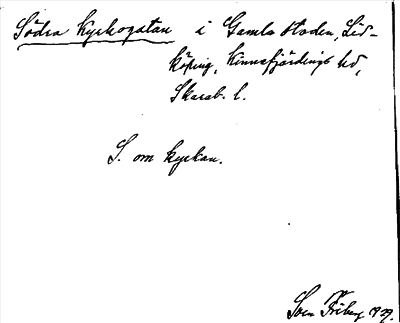 Södra Kyrkogatan i Gamla Staden, Lid-
köping, Kinnefjärdings hd,
Skarab. l.
S. om kyrkan.
Sven Friberg